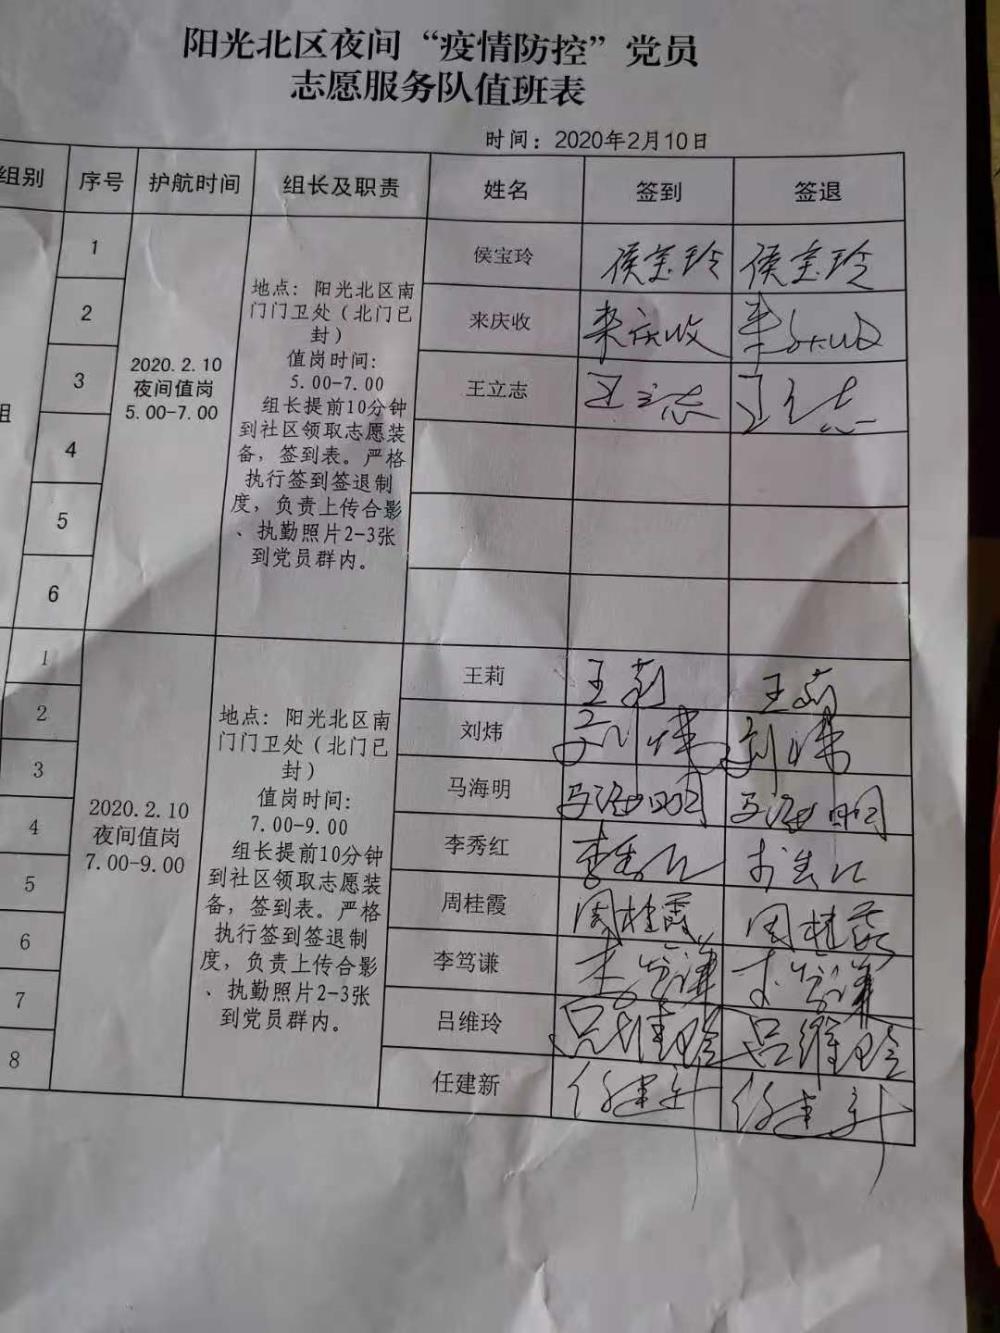 阳光北区夜间“疫情防控”党员
志愿服务队值班表
时间：2020年2月10日
组别 序号 护航时间 组长及职责 姓名 签到 签退
组
2020.2.10
夜间值岗
5.00-7.00
地点：阳光北区南
门门卫处（北门已
封）
值岗时间：
5.00-7.00
组长提前10分钟
到社区领取志愿装
备，签到表。严格
执行签到签退制
度，负责上传合影
、执勤照片2-3张
到党员群内。
1 侯宝玲 侯宝玲 侯宝玲
2 来庆收 来庆收 来庆收
3 王立志 王立志 王立志
4
5
6
2020.2.10
夜间值岗
7.00-9.00
地点：阳光北区南
门门卫处（北门已
封）
值岗时间：
7.00-9.00
组长提前10分钟
到社区领取志愿装
备，签到表。严格
执行签到签退制
度，负责上传合影
、执勤照片2-3张
到党员群内。
1 王莉 王莉 王莉
2 刘炜 刘炜 刘炜
3 马海明 马海明 马海明
4 李秀红 李秀红 李秀红
5 周桂霞 周桂霞 周桂霞
6 李笃谦 李笃谦 李笃谦
7 吕维玲 吕维玲 吕维玲
8 任建新 任建新 任建新